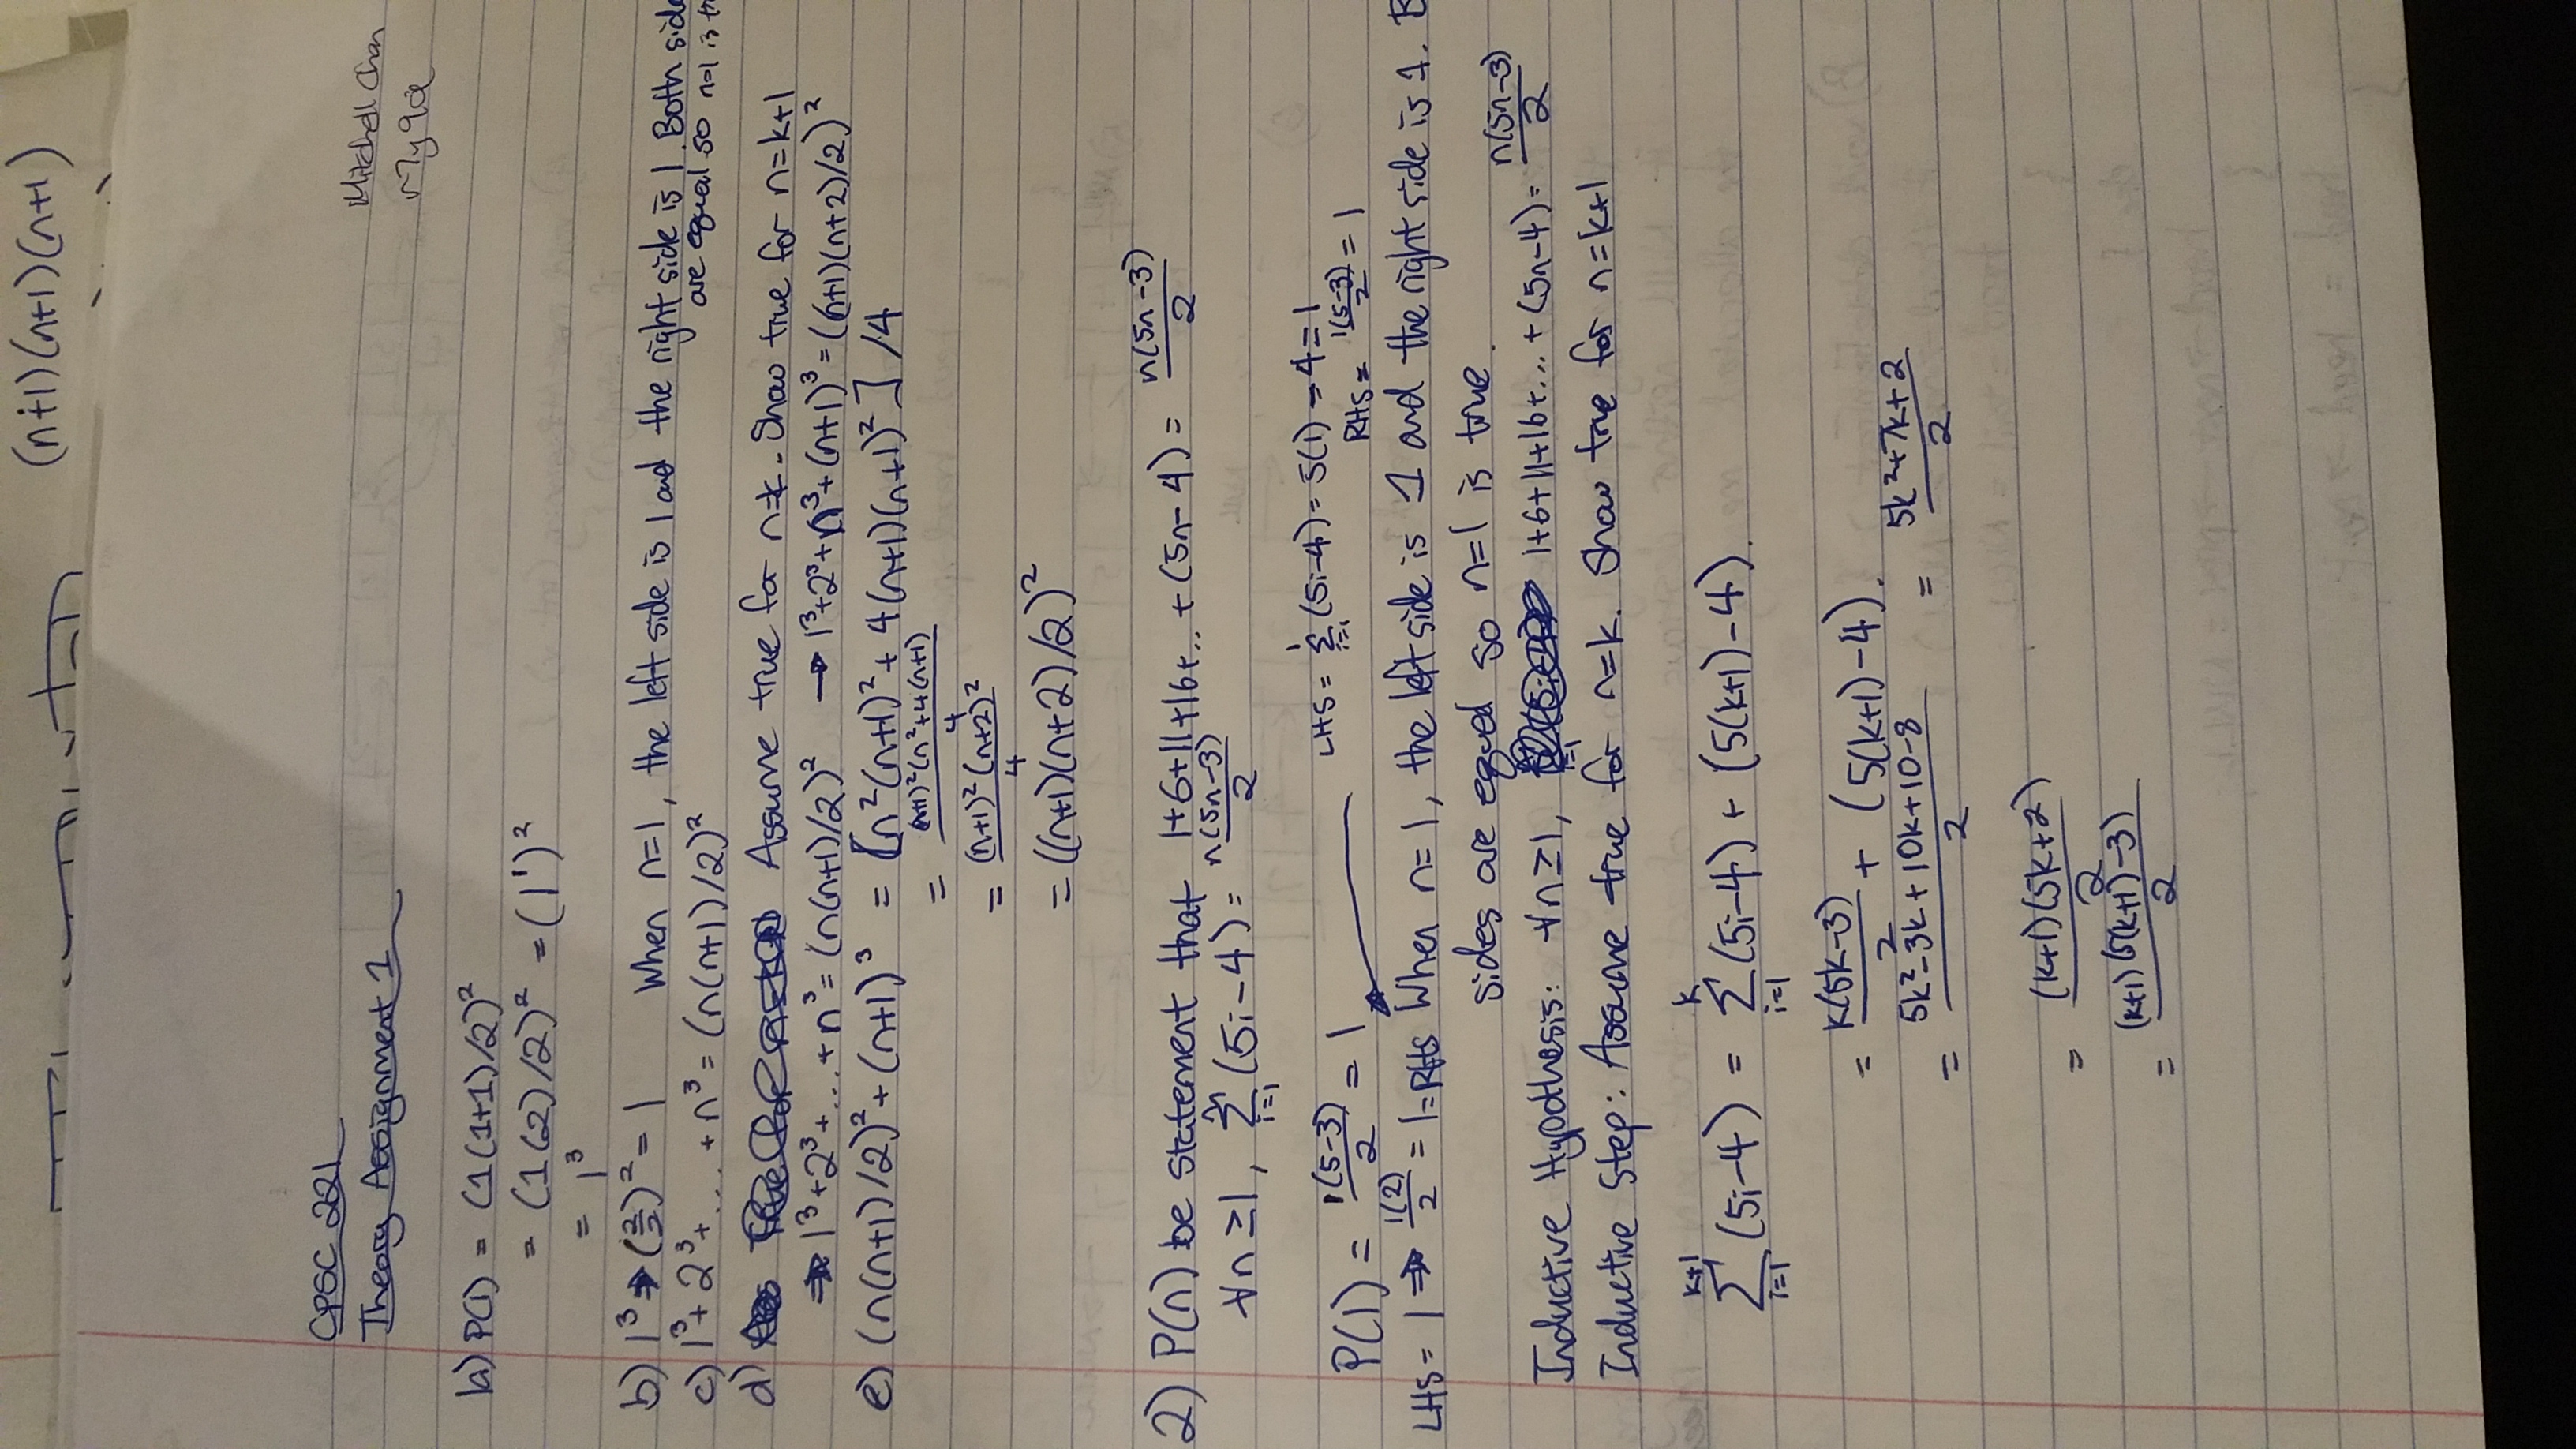 (n+1)(n+1)(n+1)
CPSC 221
Theory Assignment 1
Mitchell Chan
1a) P(1) = (1(1+1)/2)²
= (1(2)/2)² = (1¹)²
= 1³
b) 1³ → (2/2)² = 1 When n=1, the left side is 1 and the right side is 1. Both side
are equal so n=1 is
c) 1³+2³+... +n³ = (n(n+1)/2)²
d) Assume true for n=k. Show true for n=k+1
⇒ 1³+2³+...+n³ = (n(n+1)/2)² → 1³+2³+n³+(n+1)³ = ((n+1)(n+2)/2)²
e) (n(n+1)/2)²+(n+1)³ = [n²(n+1)²+4(n+1)(n+1)²]/4
= (n+1)²(n²+4(n+1)/4
= (n+1)²(n+2)²/4
= ((n+1)(n+2)/2)²
2) P(n) be statement that 1+6+11+16+.. +(5n-4) = n(5n-3)/2
∀n≥1, Σ_{i=1}^{n} (5i-4) = n(5n-3)/2
LHS = Σ_{i=1}^{1} (5i-4) = 5(1)-4 = 1
P(1) = 1(5-3)/2 = 1
RHS = 1(5-3)/2 = 1
LHS = 1 ⇒ 1(2)/2 = 1 = RHS When n=1, the left side is 1 and the right side is 1. B
sides are equal so n=1 is true.
Inductive Hypothesis: ∀n≥1, 1+6+11+16+... +(5n-4) = n(5n-3)/2
Inductive Step: Assume true for n=k. Show true for n=k+1
Σ_{i=1}^{k+1} (5i-4) = Σ_{i=1}^{k} (5i-4) + (5(k+1)-4).
= k(5k-3)/2 + (5(k+1)-4).
= 5k²-3k+10k+10-8/2 = 5k²+7k+2/2
= (k+1)(5k+2)/2
= (k+1)(5(k+1)-3)/2